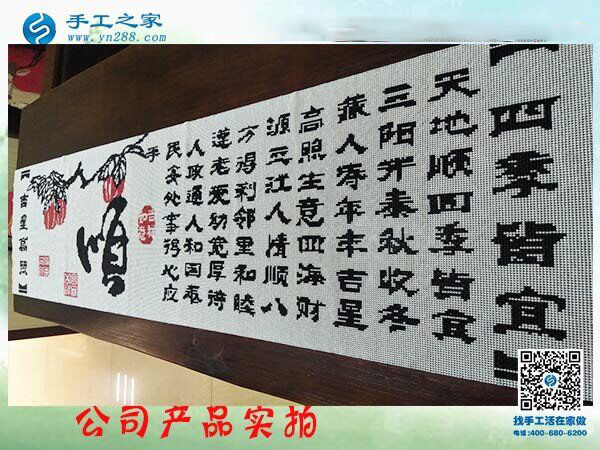 手工之家
www.yn288.com
四季皆宜
天地顺四季皆宜
三阳开泰秋收冬
藏人寿年丰吉星
高照生意四海财
源三江人情顺八
方得利邻里和睦
遵老爱幼宽厚待
人政通人和国泰
民安处事得心应
手
顺
吉星高照
公司产品实拍
找手工活在家做
电话:400-680-6200